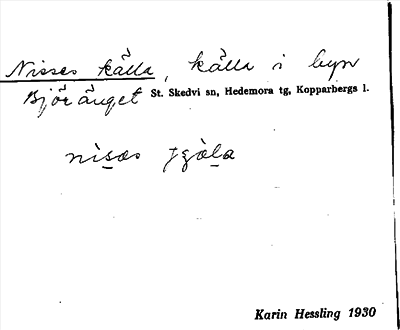 Nisses källa, källa i byn
Björänget St. Skedvi sn, Hedemora tg, Kopparbergs l.
nìsas
Karin Hessling 1930